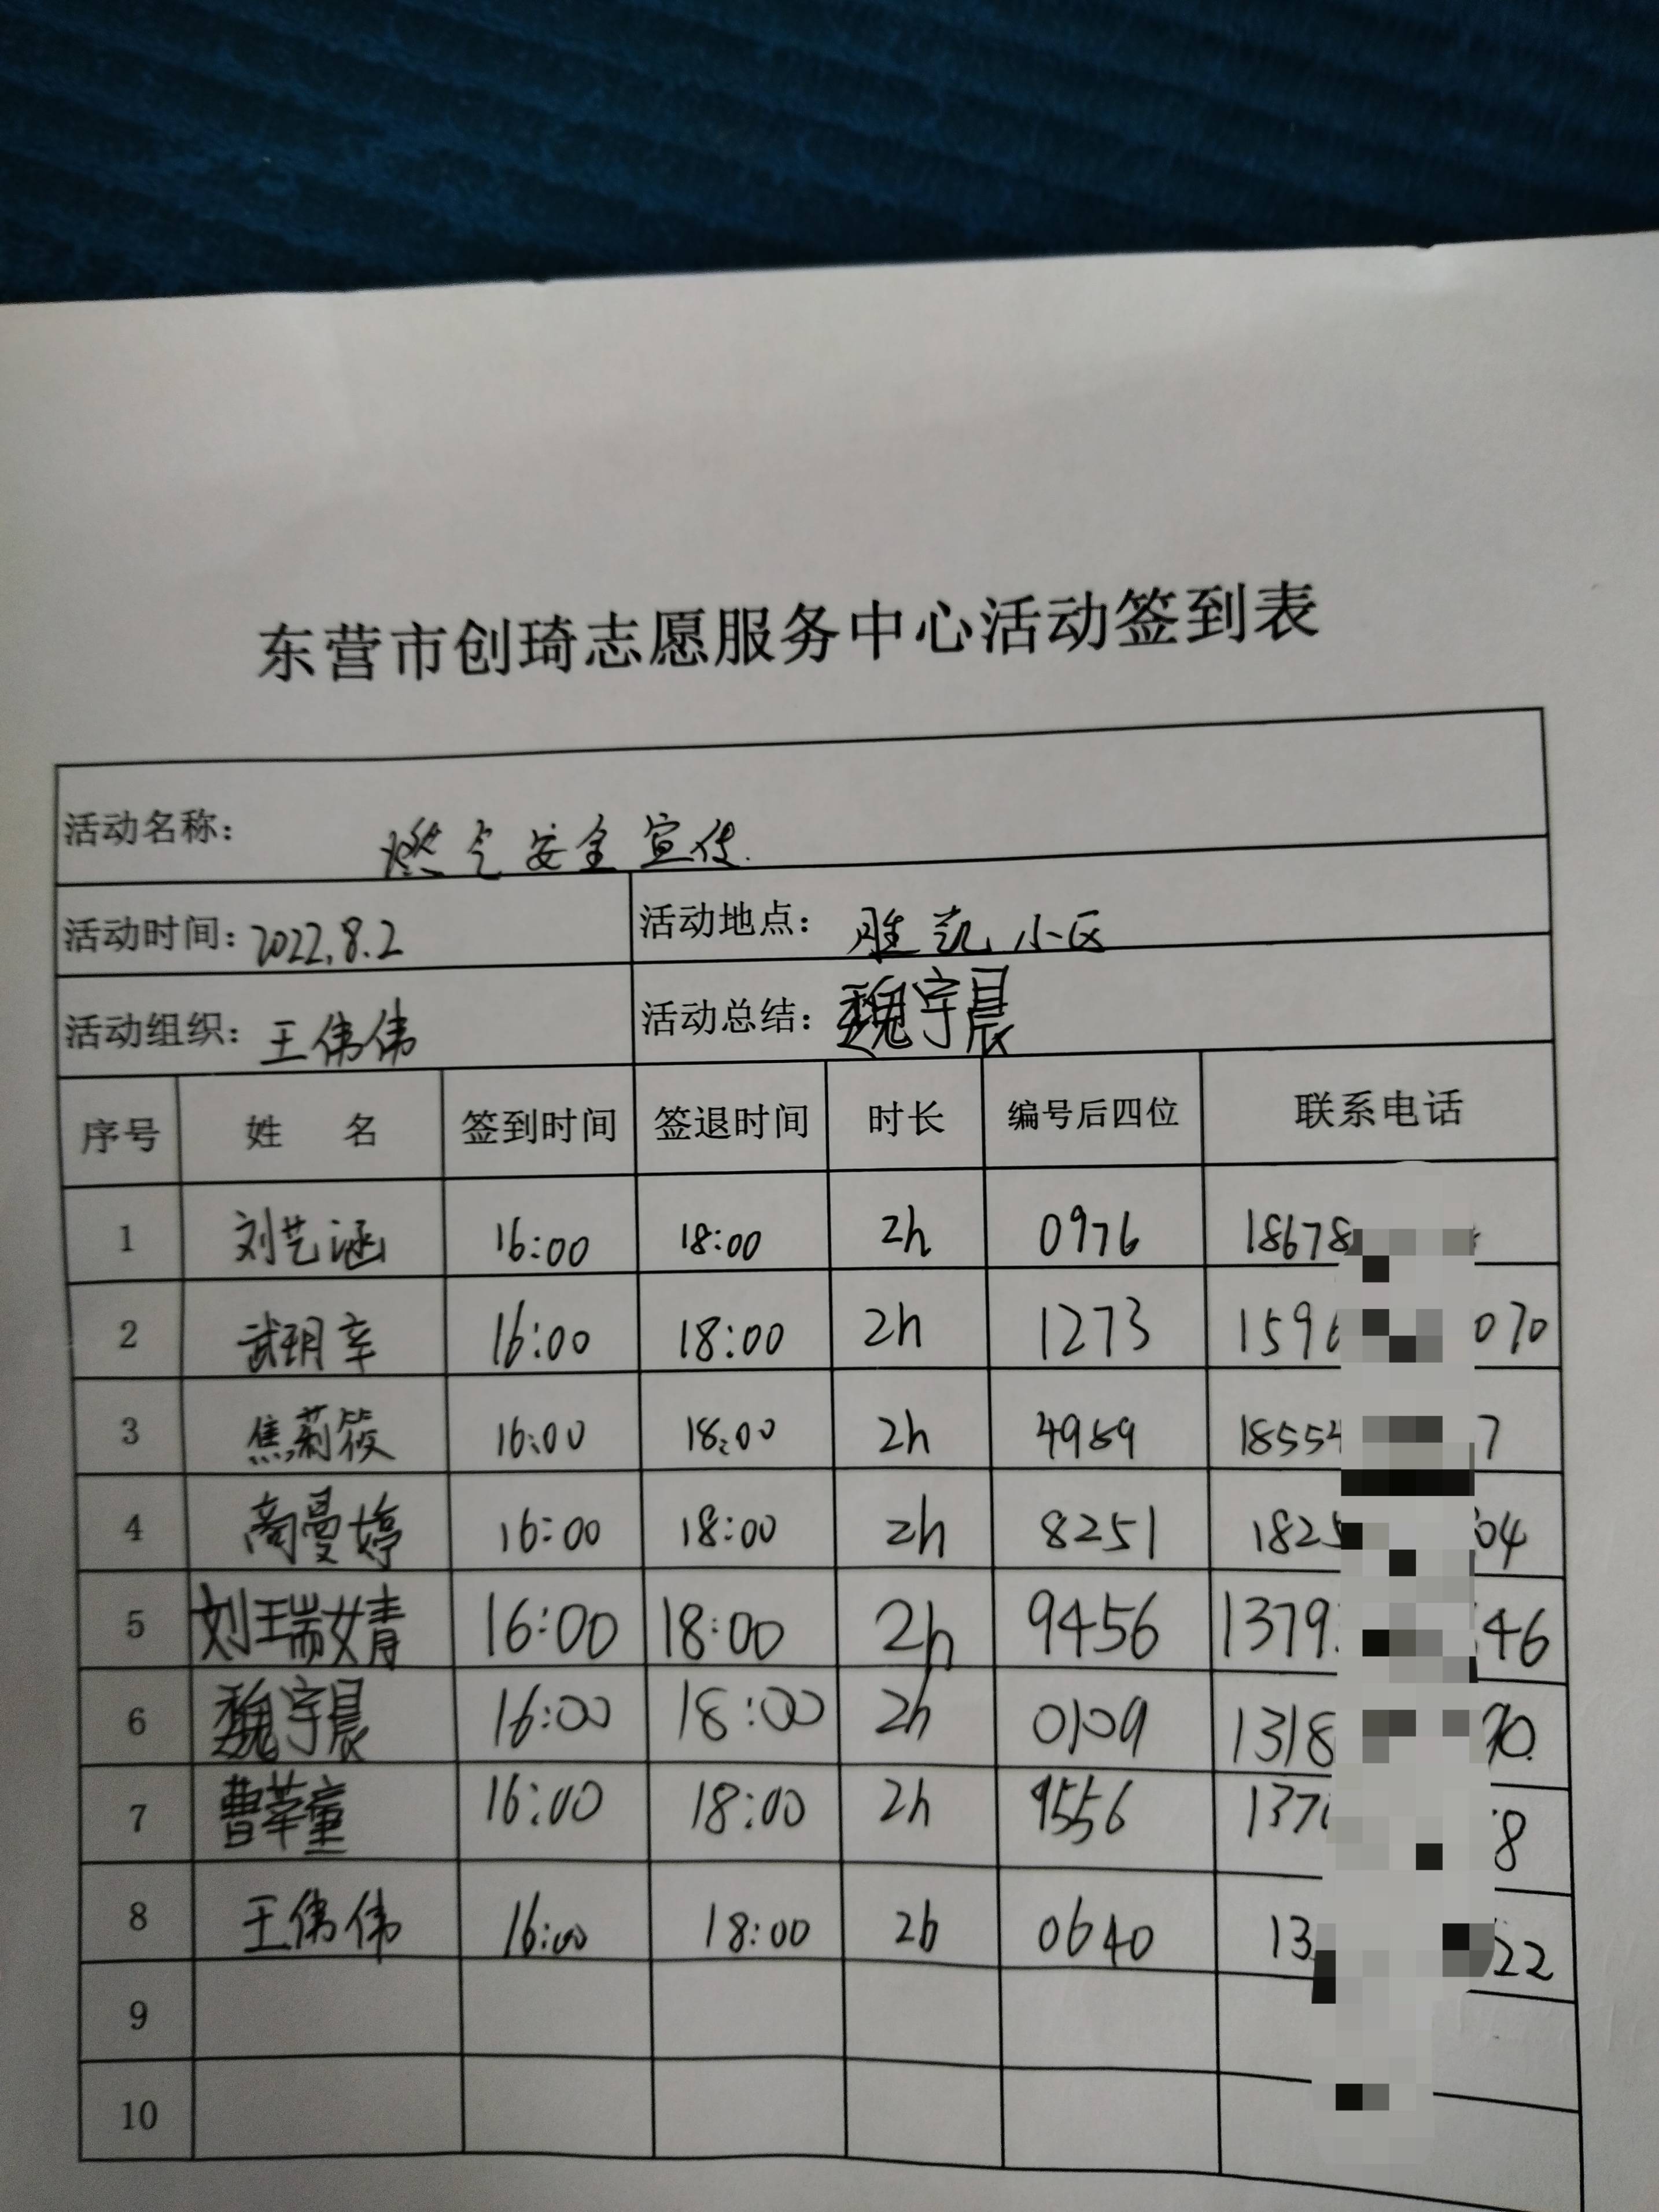 东营市创琦志愿服务中心活动签到表
活动名称: 燃气安全宣传.
活动时间: 2022.8.2 活动地点: 胜凯小区
活动组织: 王伟伟 活动总结: 魏宇晨
序号 姓 名 签到时间 签退时间 时长 编号后四位 联系电话
1 刘艺涵 16:00 18:00 2h 0976 18678
2 武玥辛 16:00 18:00 2h 1273 1596 070
3 焦莉筱 16:00 18:00 2h 4969 18554 7
4 商曼婷 16:00 18:00 2h 8251 1825 04
5 刘瑞婧 16:00 18:00 2h 9456 1379 46
6 魏宇晨 16:00 18:00 2h 0109 1318 90.
7 曹莘童 16:00 18:00 2h 9556 137 8
8 王伟伟 16:00 18:00 2h 0640 13 22
9
10